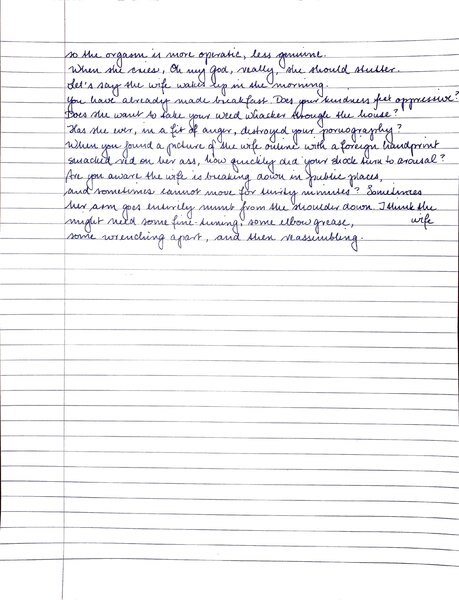 so the orgasm is more operatic, less genuine.
When she cries, Oh my god, really, she should stutter.
Let's say the wife wakes up in the morning.
You have already made breakfast. Does your kindness feel oppressive?
Does she want to take your weed whacker through the house?
Has she ever, in a fit of anger, destroyed your pornography?
When you found a picture of the wife online with a foreign handprint
smacked red on her ass, how quickly did your shock turn to arousal?
Are you aware the wife is breaking down in public places,
and sometimes cannot move for thirty minutes? Sometimes
her arm goes entirely numb from the shoulder down. I think the
wife
might need some fine-tuning, some elbow grease,
some wrenching apart, and then reassembling.